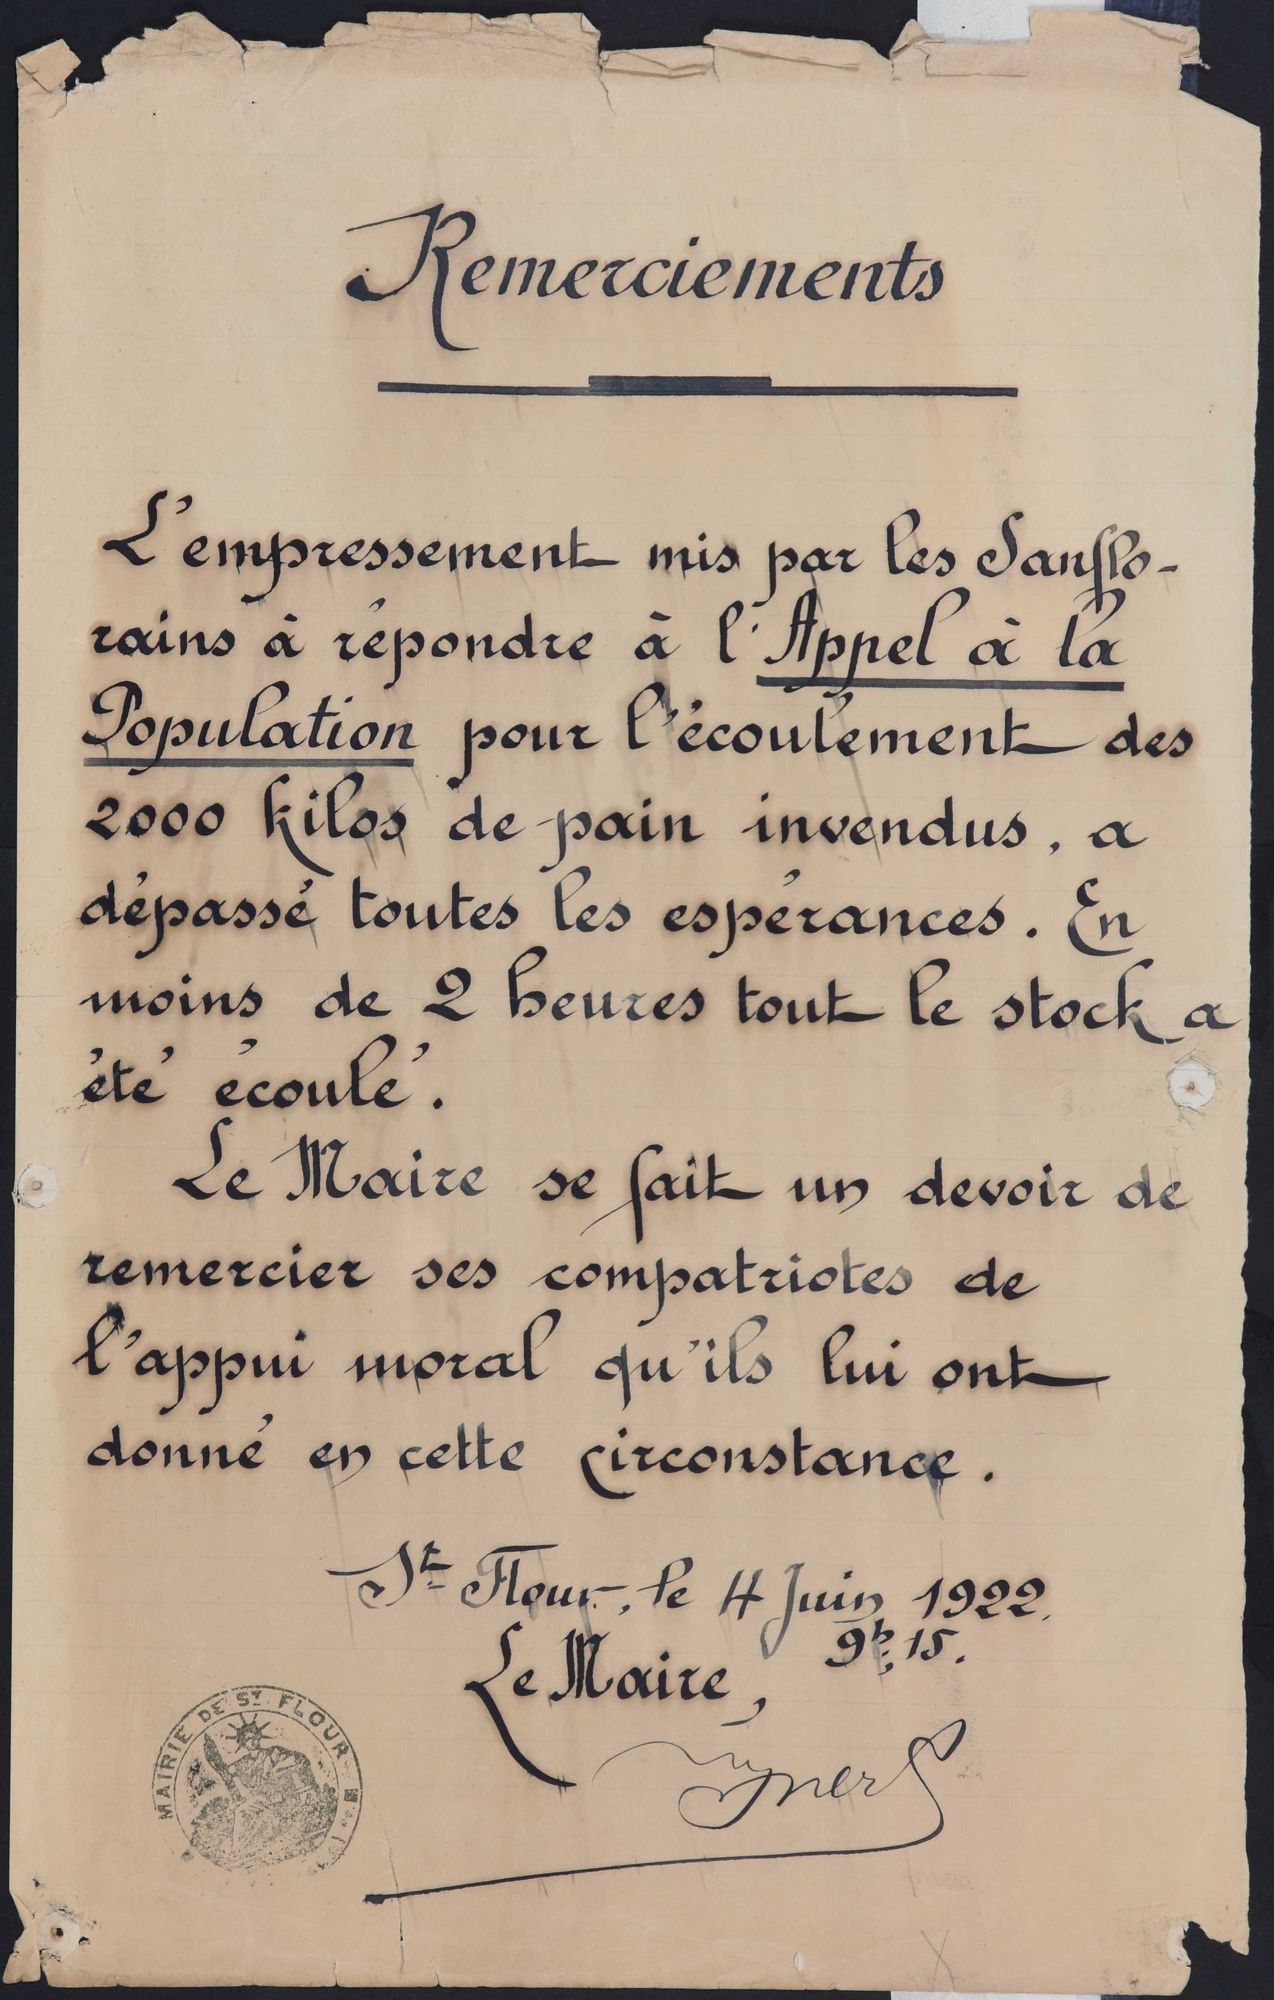 Remerciements
L'empressement mis par les Sanflo-
rains à répondre à l'Appel à la
Population pour l'écoulement des
2000 kilos de pain invendus, a
dépassé toutes les espérances. En
moins de 2 heures tout le stock a
été écoulé.
Le Maire se fait un devoir de
remercier ses compatriotes de
l'appui moral qu'ils lui ont
donné en cette circonstance.
St Flour, le 4 Juin 1922.
9h, 15.
Le Maire,
MAIRIE DE ST FLOUR